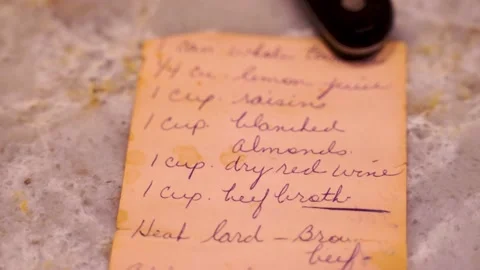 1 can whole
1/4 cu. lemon juice
1 cup. raisins
1 cup. blanched
almonds.
1 cup. dry red wine
1 cup. beef broth
Heat lard - Brown
beef -